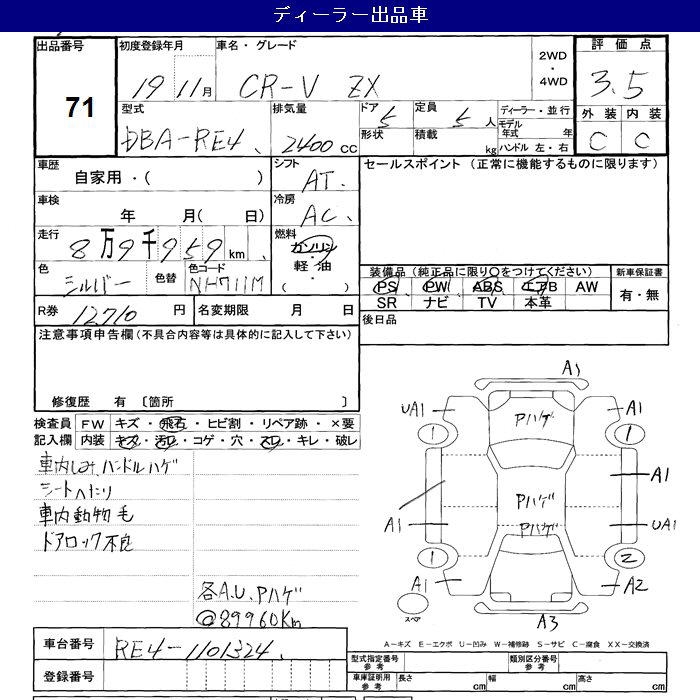 ディーラー出品車
出品番号 初度登録年月 車名・グレード 2WD ・ 4WD 評価点
71 19 11月 CR-V ZX 3.5
型式 排気量 ドア 定員 ディーラー・並行 外装 内装
DBA-RE4 2400cc 5 5人 モデル年式 年 C C
形状 積載 kg ハンドル 左・右
車歴 シフト セールスポイント (正常に機能するものに限ります)
自家用・( ) AT
車検 年 月( 日) 冷房 AC
走行 8万9千959km 燃料 ガソリン
軽油
( )
色 シルバー 色替 色コード NH711M
装備品(純正品に限り○をつけてください) 新車保証書
PS PW ABS エアB AW 有・無
SR ナビ TV 本革
R券 12710円 名変期限 月 日 後日品
注意事項申告欄(不具合内容等は具体的に記入して下さい)
修復歴 有 〔箇所 〕
検査員 FW キズ・飛石・ヒビ割・リペア跡・×要
記入欄 内装 キズ・汚レ・コゲ・穴・スレ・キレ・破レ
車内しみ、ハンドルハゲ
シートへたり
車内動物毛
ドアロック不良
各A.U.Pハゲ
@89960Km
A1
UA1 A1
Pハゲ
1 1
A1
Pハゲ
A1 UA1
Pハゲ
1 2
A1 A2
スペア A3
A-キズ E-エクボ U-凹み W-補修跡 S-サビ C-腐食 XX-交換済
車台番号 RE4-1101324
登録番号
型式指定番号 参考 類別区分番号 参考
車庫証明用 参考 長さ cm 幅 cm 高さ cm